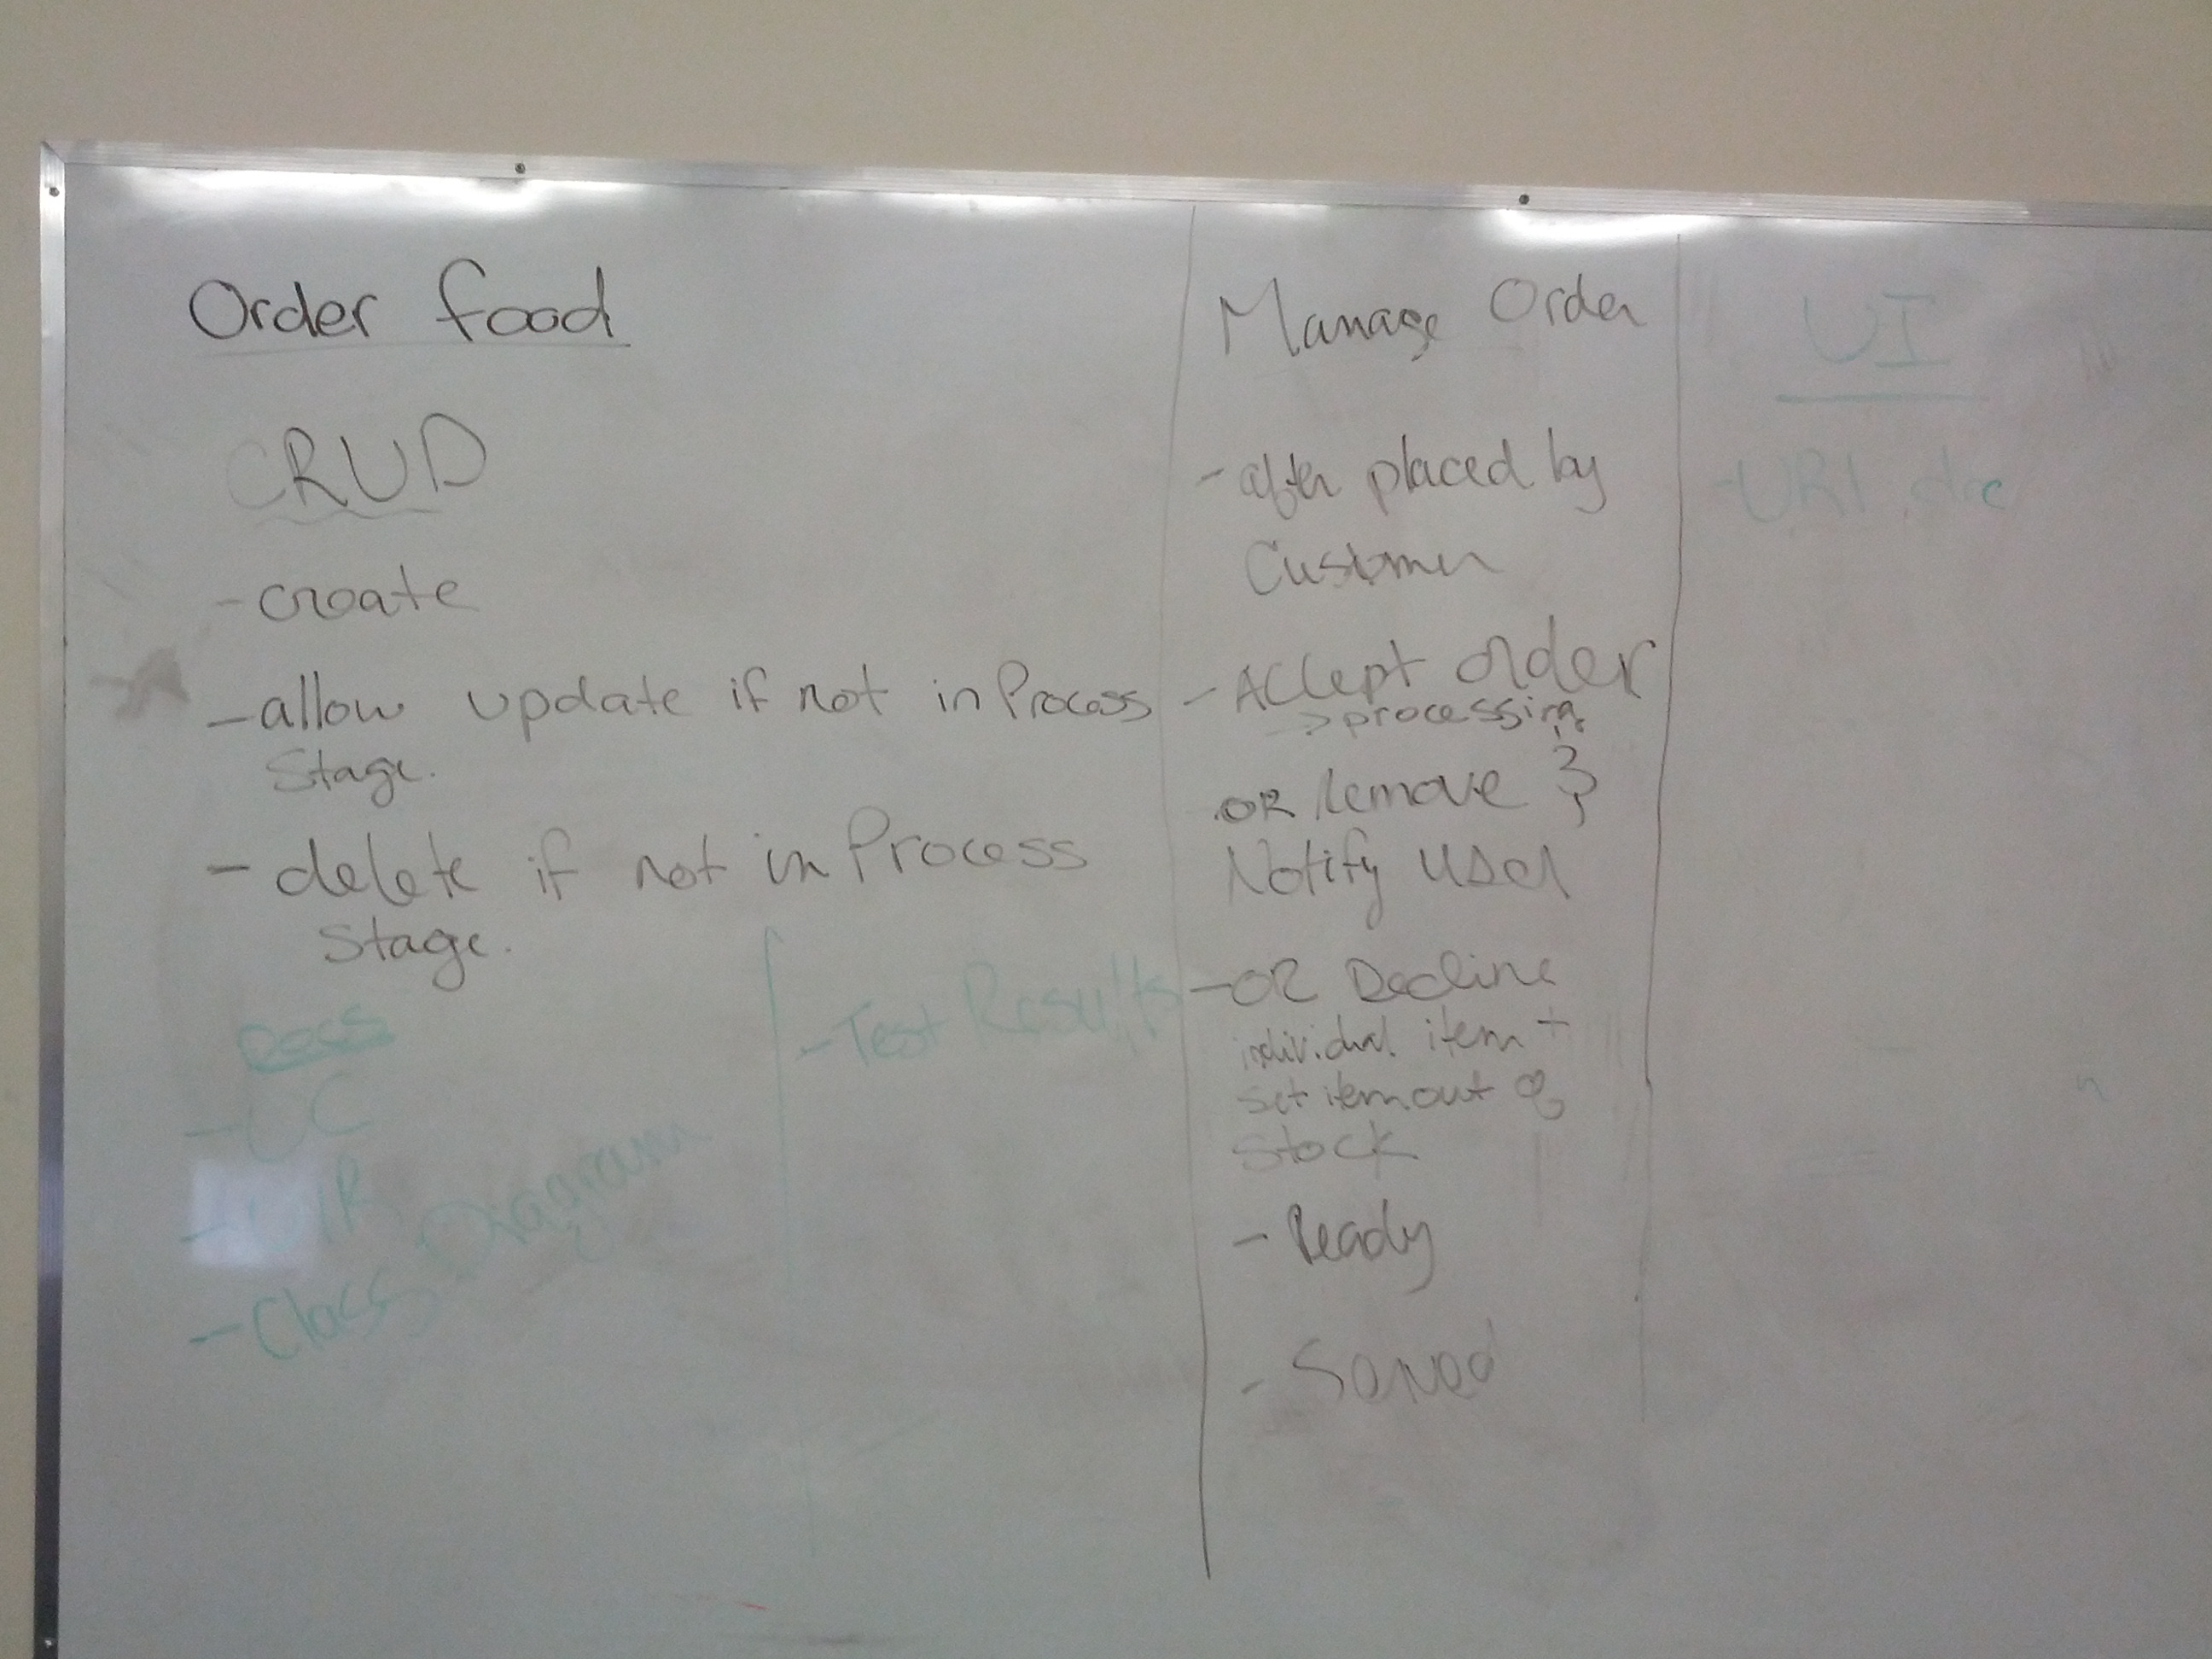 Order food
CRUD
- create
- allow update if not in Process
Stage.
- delete if not in Process
Stage.
Docs
- UC
- Class Diagram
- Test Results
Manage Order
- after placed by
Customer
- Accept order
> processing
OR Remove &
Notify User
- OR Decline
individual item +
set item out of
stock
- Ready
- Served
UI